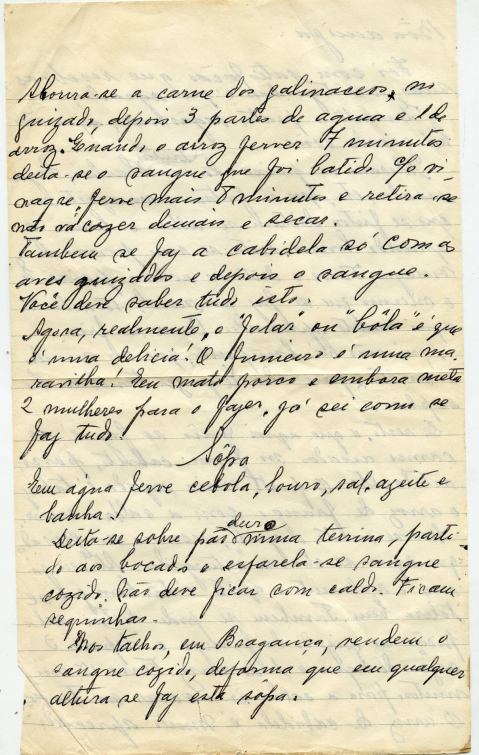 Aloura-se a carne dos galinaceos, no
guizado depois 3 partes de agua e 1 de
arroz. Quando o arroz ferver 7 minutos
deita-se o sangue que foi batido c/o vi-
nagre, ferve mais 8 minutos e retira-se
não vá cozer demais e secar.
Tambem se faz a cabidela só com as
aves guizadas e depois o sangue.
Você deve saber tudo isto.
Agora, realmente, o "folar" ou "bôla" é que
é uma delicia. O fumeiro é uma ma-
ravilha! Eu mato porco e embora meta
2 mulheres para o fazer, já sei como se
faz tudo.
Sôpa
Em agua ferve cebola, louro, sal, azeite e
banha.
Deita-se sobre pão duro numa terrina, parti-
do aos bocados e esfarela-se sangue
cozido. Não deve ficar com caldo. Ficam
sequinhas.
Nos talhos, em Bragança, vendem o
sangue cozido, deforma que em qualquer
altura se faz esta sôpa.